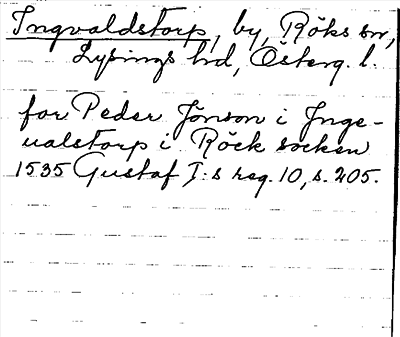 Ingvaldstorp, by, Röks sn,
Lysings hd, Österg. l.
for Peder Jönson i Inge-
ualstorp i Röck socken
1535 Gustaf I:s reg. 10, s. 205.